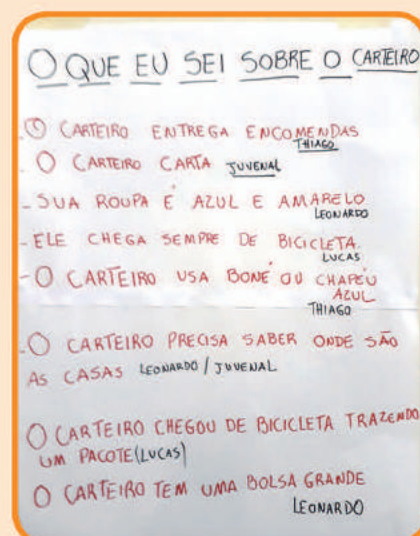 O QUE EU SEI SOBRE O CARTEIRO
- O CARTEIRO ENTREGA ENCOMENDAS
THIAGO
- O CARTEIRO CARTA JUVENAL
- SUA ROUPA É AZUL E AMARELO
LEONARDO
- ELE CHEGA SEMPRE DE BICICLETA.
LUCAS
- O CARTEIRO USA BONÉ OU CHAPÉU
AZUL
THIAGO
- O CARTEIRO PRECISA SABER ONDE SÃO
AS CASAS LEONARDO / JUVENAL
O CARTEIRO CHEGOU DE BICICLETA TRAZENDO
UM PACOTE (LUCAS)
O CARTEIRO TEM UMA BOLSA GRANDE
LEONARDO